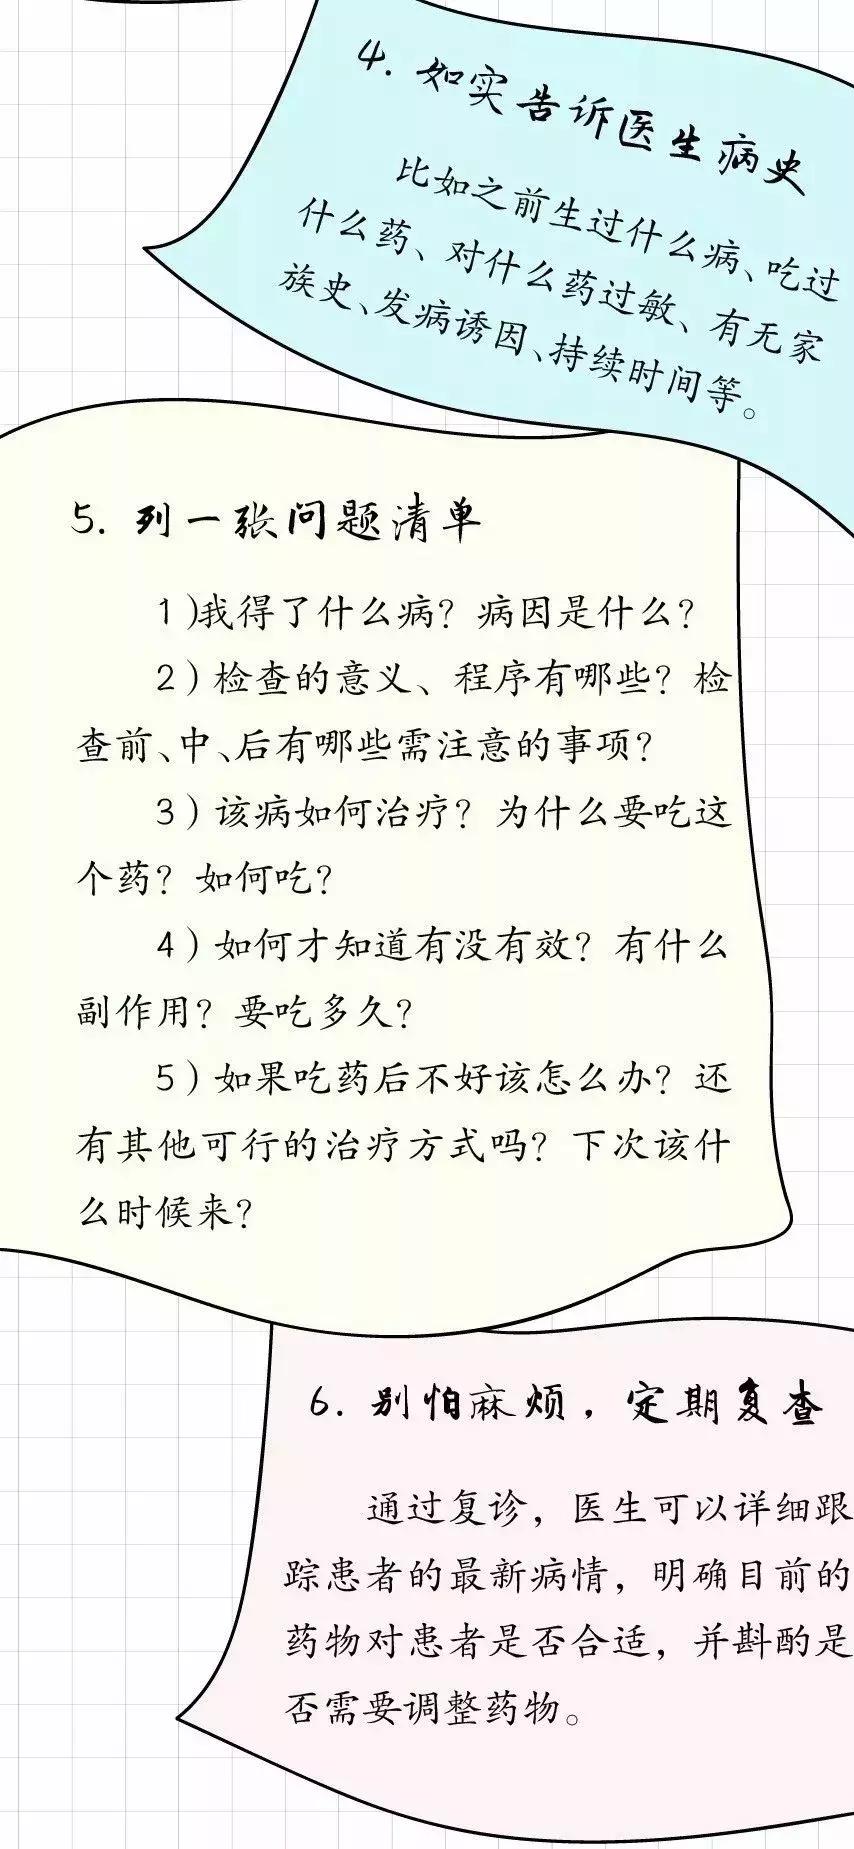 4. 如实告诉医生病史
比如之前生过什么病、吃过
什么药、对什么药过敏、有无家
族史、发病诱因、持续时间等。
5. 列一张问题清单
1)我得了什么病？病因是什么？
2)检查的意义、程序有哪些？检
查前、中、后有哪些需注意的事项？
3)该病如何治疗？为什么要吃这
个药？如何吃？
4)如何才知道有没有效？有什么
副作用？要吃多久？
5)如果吃药后不好该怎么办？还
有其他可行的治疗方式吗？下次该什
么时候来？
6. 别怕麻烦，定期复查
通过复诊，医生可以详细跟
踪患者的最新病情，明确目前的
药物对患者是否合适，并斟酌是
否需要调整药物。